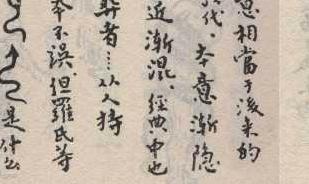 意相當于後来的
代，本意漸隐
近漸混，經典中也
者……从人持
本不誤，但羅氏等
是什么